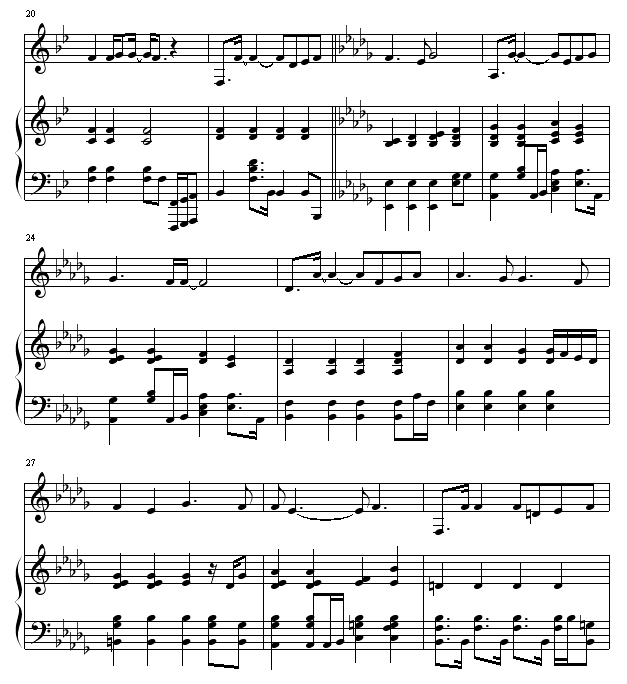 20
24
27